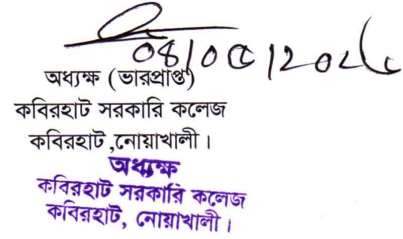 অধ্যক্ষ (ভারপ্রাপ্ত)
কবিরহাট সরকারি কলেজ
কবিরহাট ,নোয়াখালী।
অধ্যক্ষ
কবিরহাট সরকারি কলেজ
কবিরহাট, নোয়াখালী।